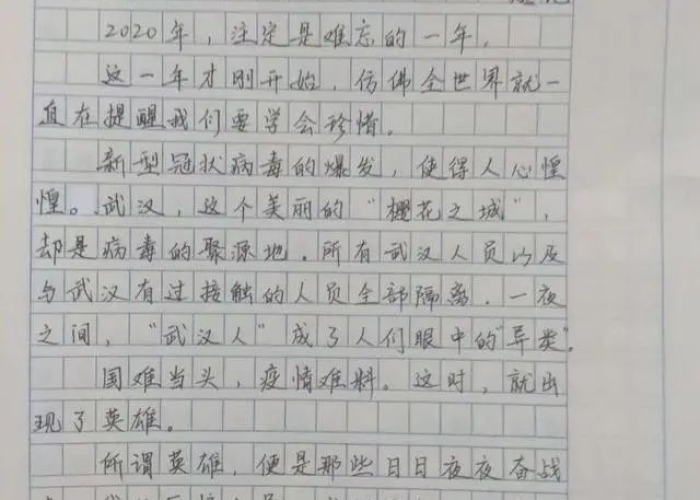 2020年，注定是难忘的一年，
这一年才刚开始，仿佛全世界就一
直在提醒我们要学会珍惜。
新型冠状病毒的爆发，使得人心惶
惶。武汉，这个美丽的“樱花之城”，
却是病毒的聚源地。所有武汉人员以及
与武汉有过接触的人员全部隔离。一夜
之间，“武汉人”成了人们眼中的“异类”。
国难当头，疫情难料。这时，就出
现了英雄。
所谓英雄，便是那些日日夜夜奋战